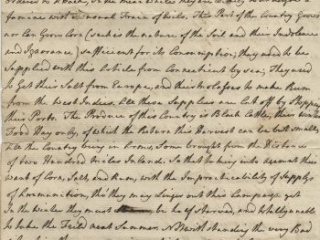 famine with its usual Train of Evils. This Part of the Country Grows
nor Can Grow Corn (such is the nature of the Soil and their Indolence
and Ignorance) sufficient for its Consumption; they used to be
Supplied with this Article from Connecticut by sea; They used
to Get their Salt from Europe, and their Molasses to make Rum
from the West Indies. All these Supplies are Cut off by Stopping
their Ports. The Produce of this Country is Black Cattle, their winter
Food Hay only, of which the Failure this Harvest can be but small,
All the Country being in Arms, Some brought from the Distance
of two Hundred Miles Inland: So that taking into account their
want of Corn, Salt, and Rum, with the Impracticability of Supplys
of Ammunition, tho' they may Linger out this Campaign yet
In the winter they must be half Starved, and Wholly unable
to take the Field next Summer. Notwithstanding the very Bad